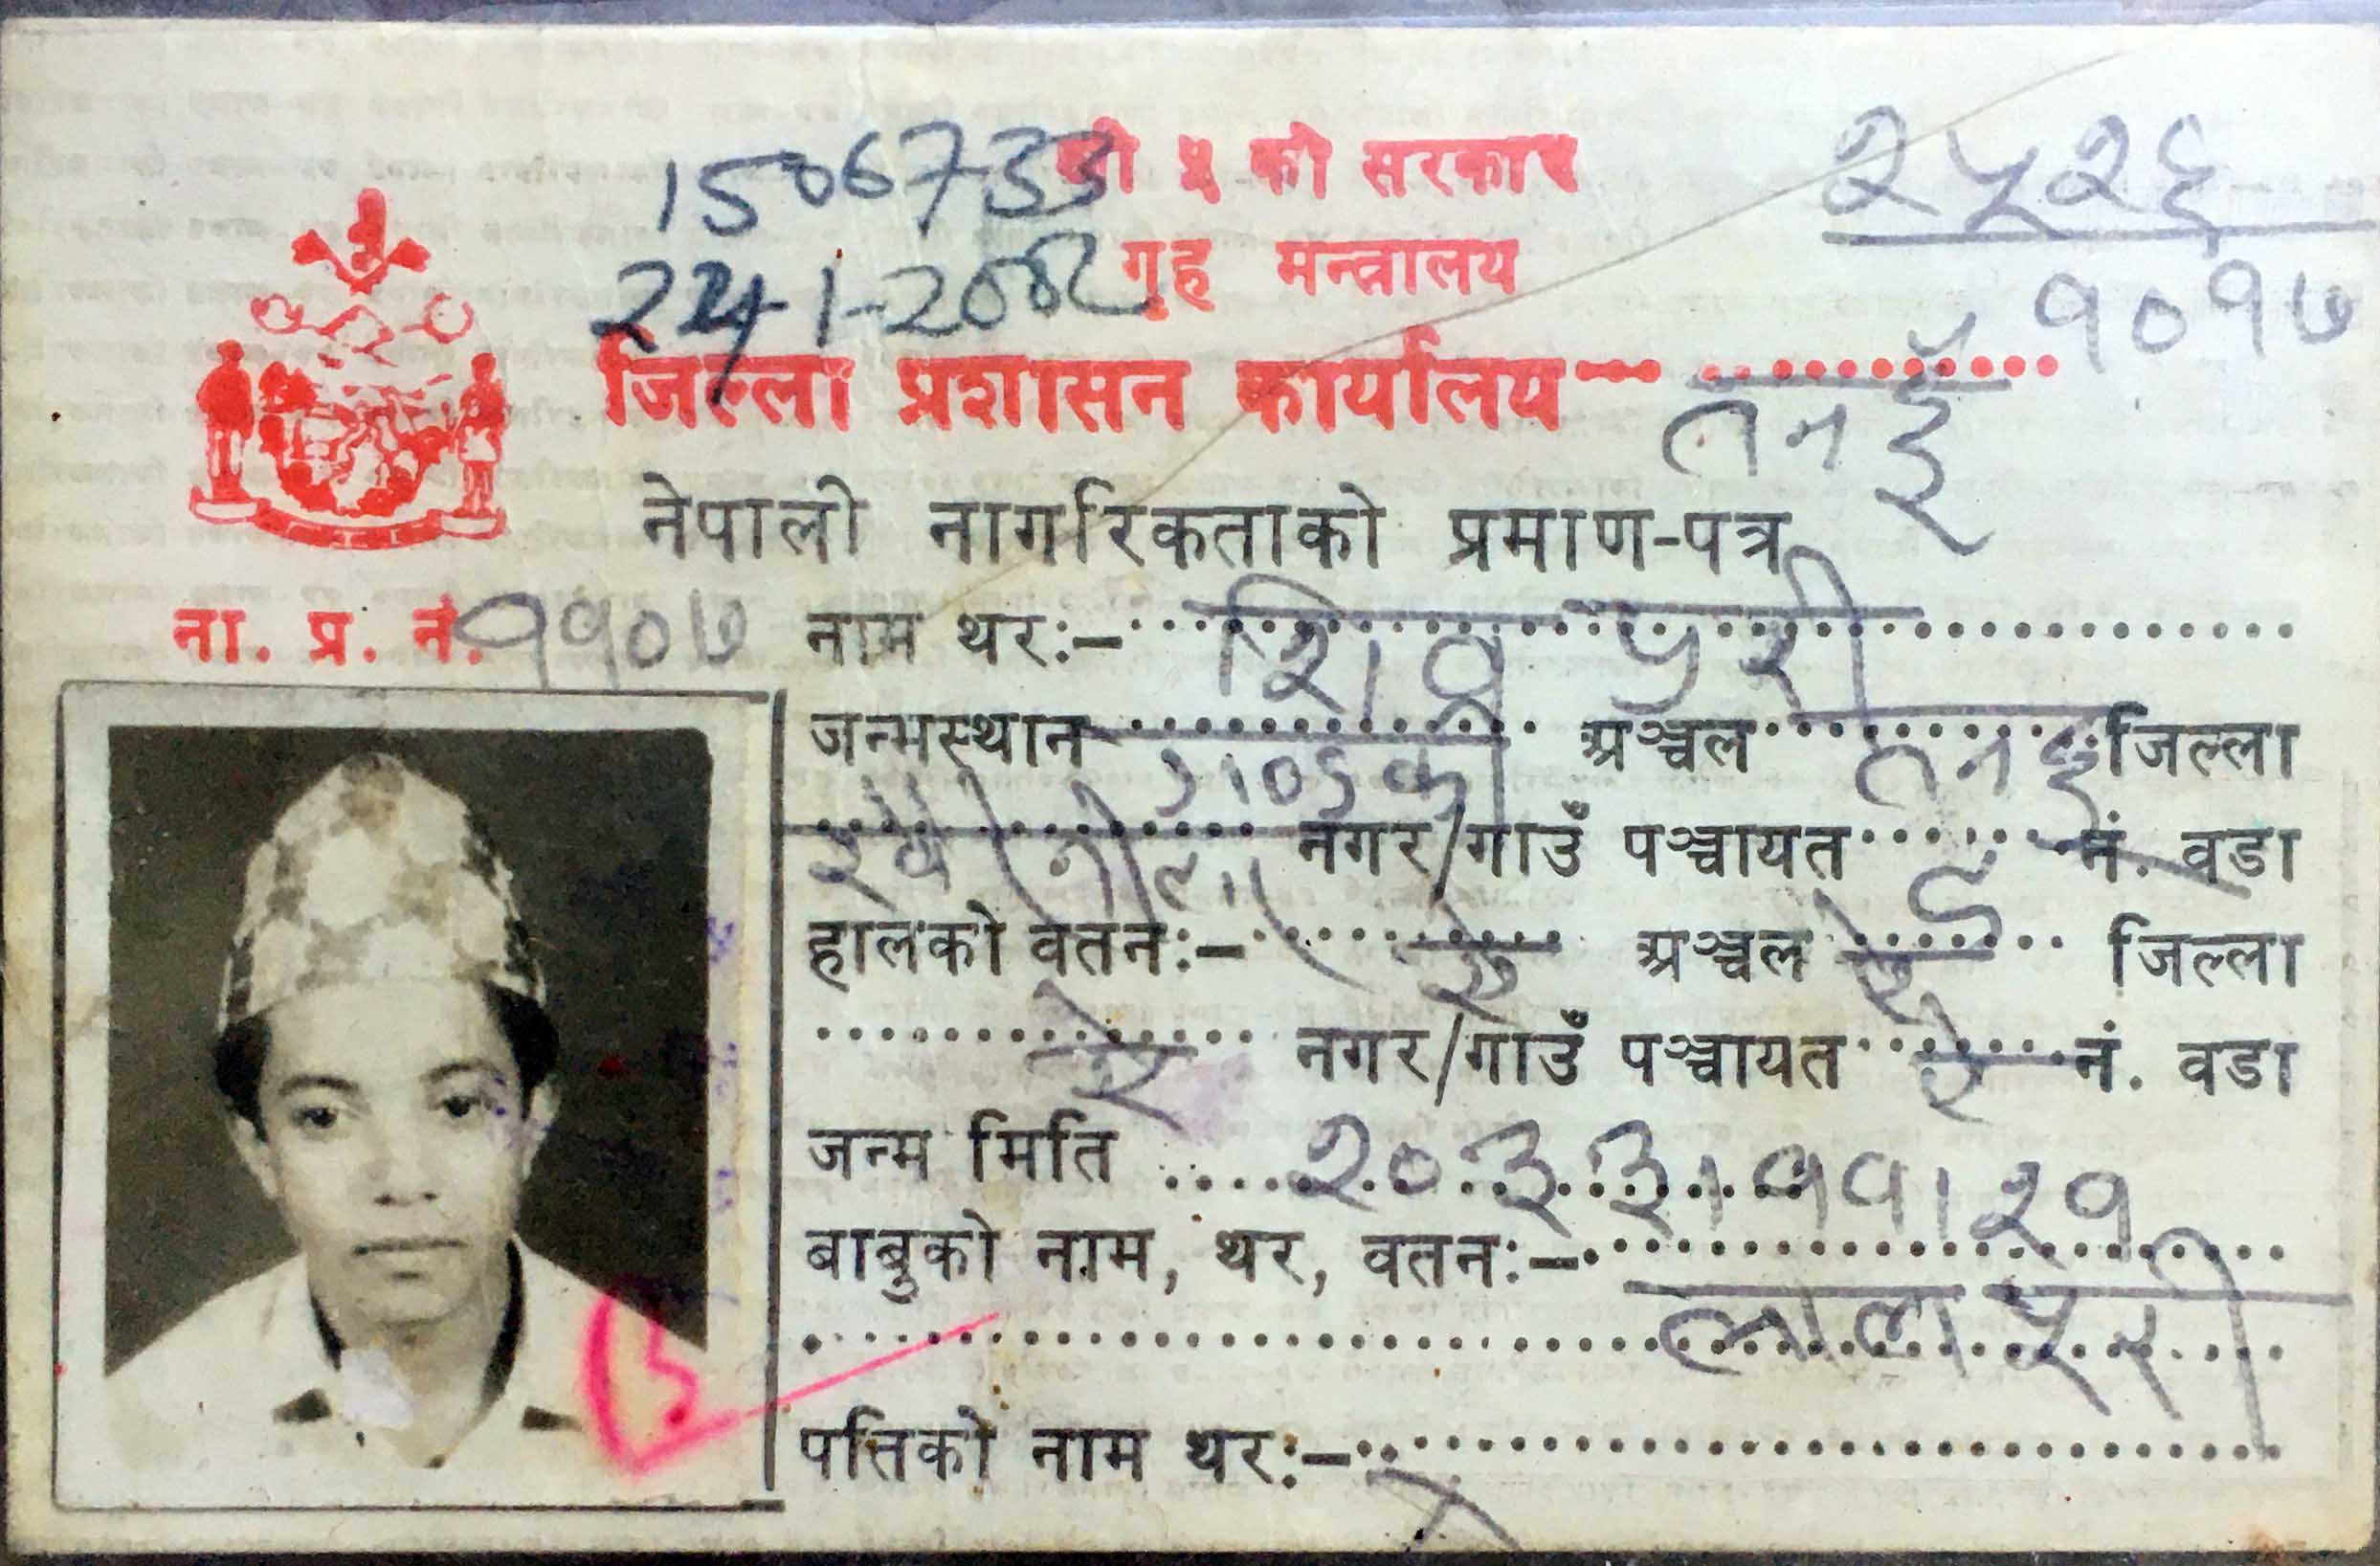 1506733 श्री ५ को सरकार २५२६
24-1-2002 गृह मन्त्रालय १०१७
जिल्ला प्रशासन कार्यालय तनहुँ
नेपाली नागरिकताको प्रमाण-पत्र
ना. प्र. नं. ११०७ नाम थर:- शिव पुरी
जन्मस्थान गण्डकी अञ्चल तनहुँ जिल्ला
नगर/गाउँ पञ्चायत नं. वडा
हालको वतन:- ऐ अञ्चल ऐ जिल्ला
ऐ नगर/गाउँ पञ्चायत ऐ नं. वडा
जन्म मिति २०३३।११।२१
बाबुको नाम, थर, वतन:-
लाल पुरी
पतिको नाम थर:- ×